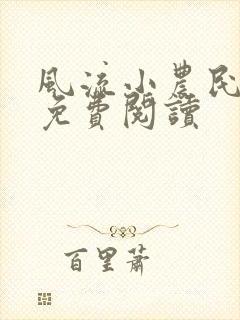 風流小農民
免費閱讀
百里蕭